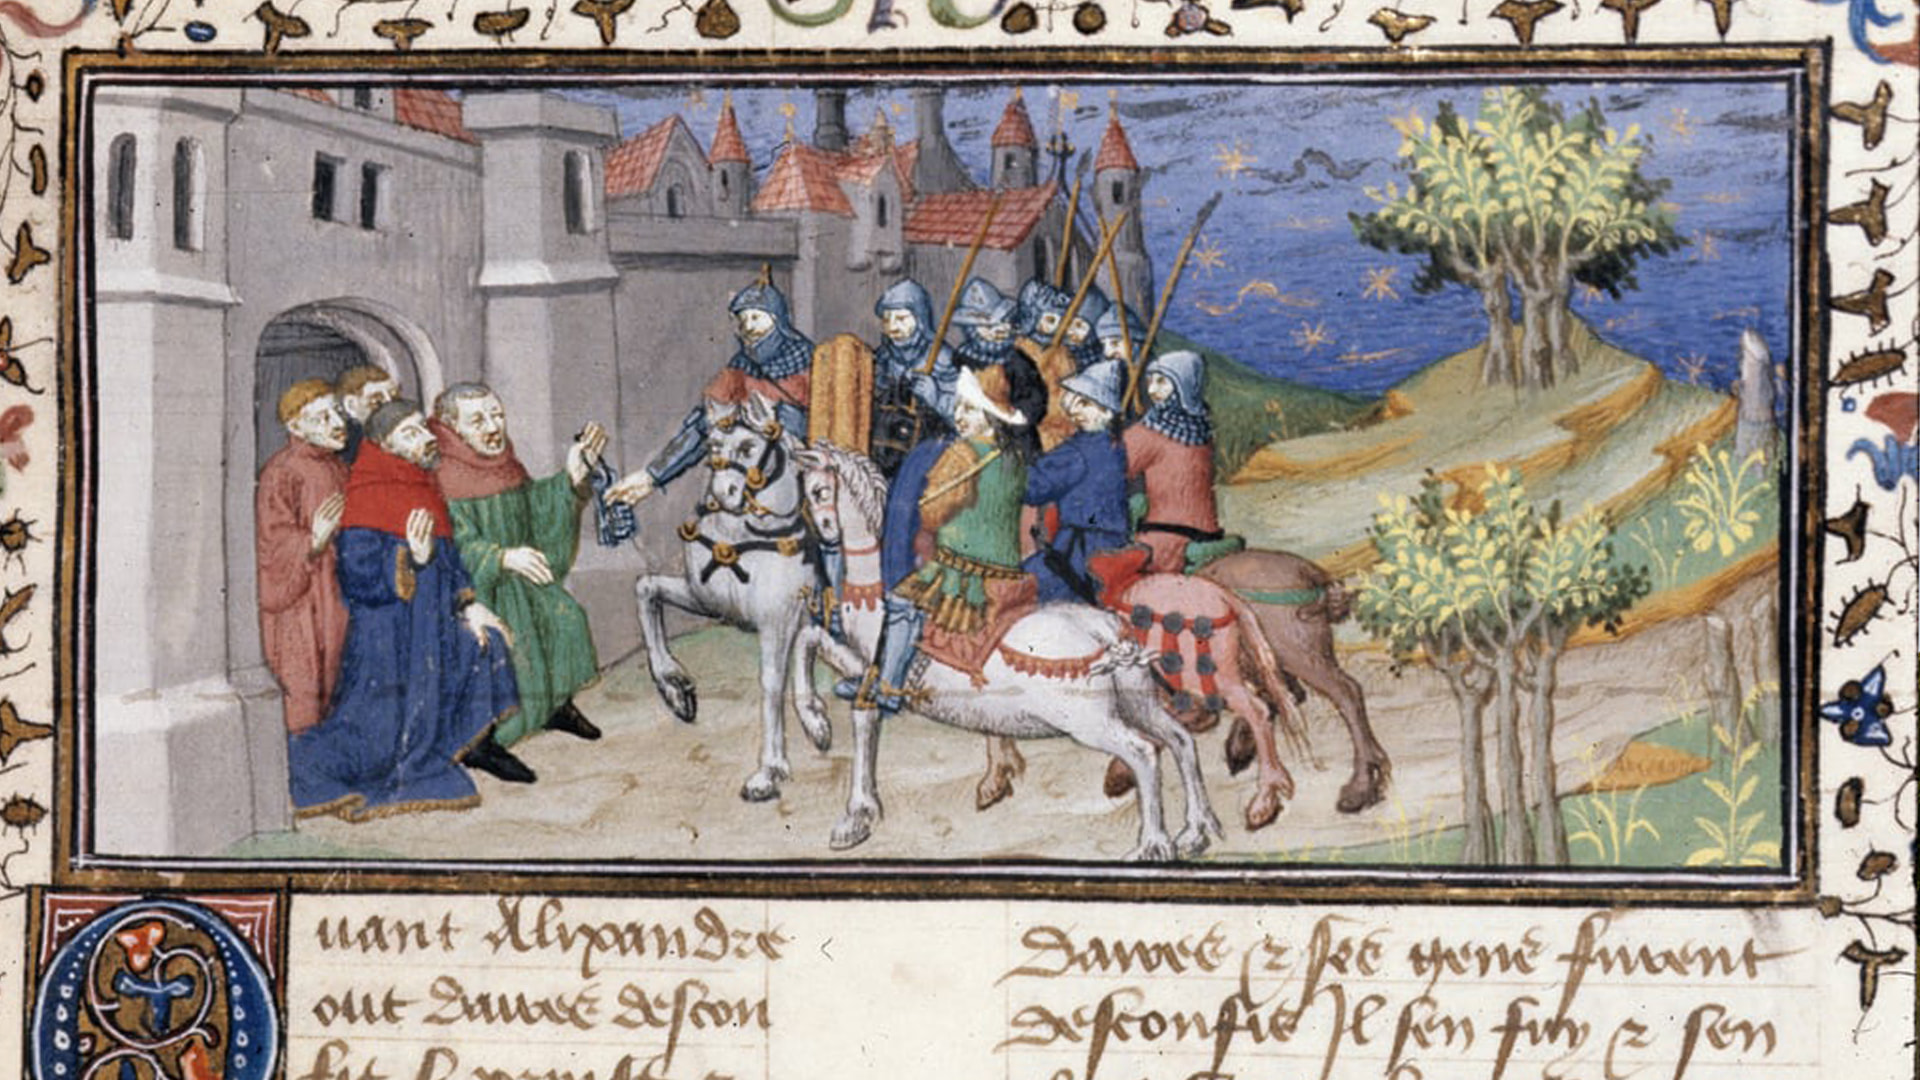 Quant Alixandre
out daires descon
fit
daires ⁊ ses gens furent
desconfis Il sen fuy ⁊ sen